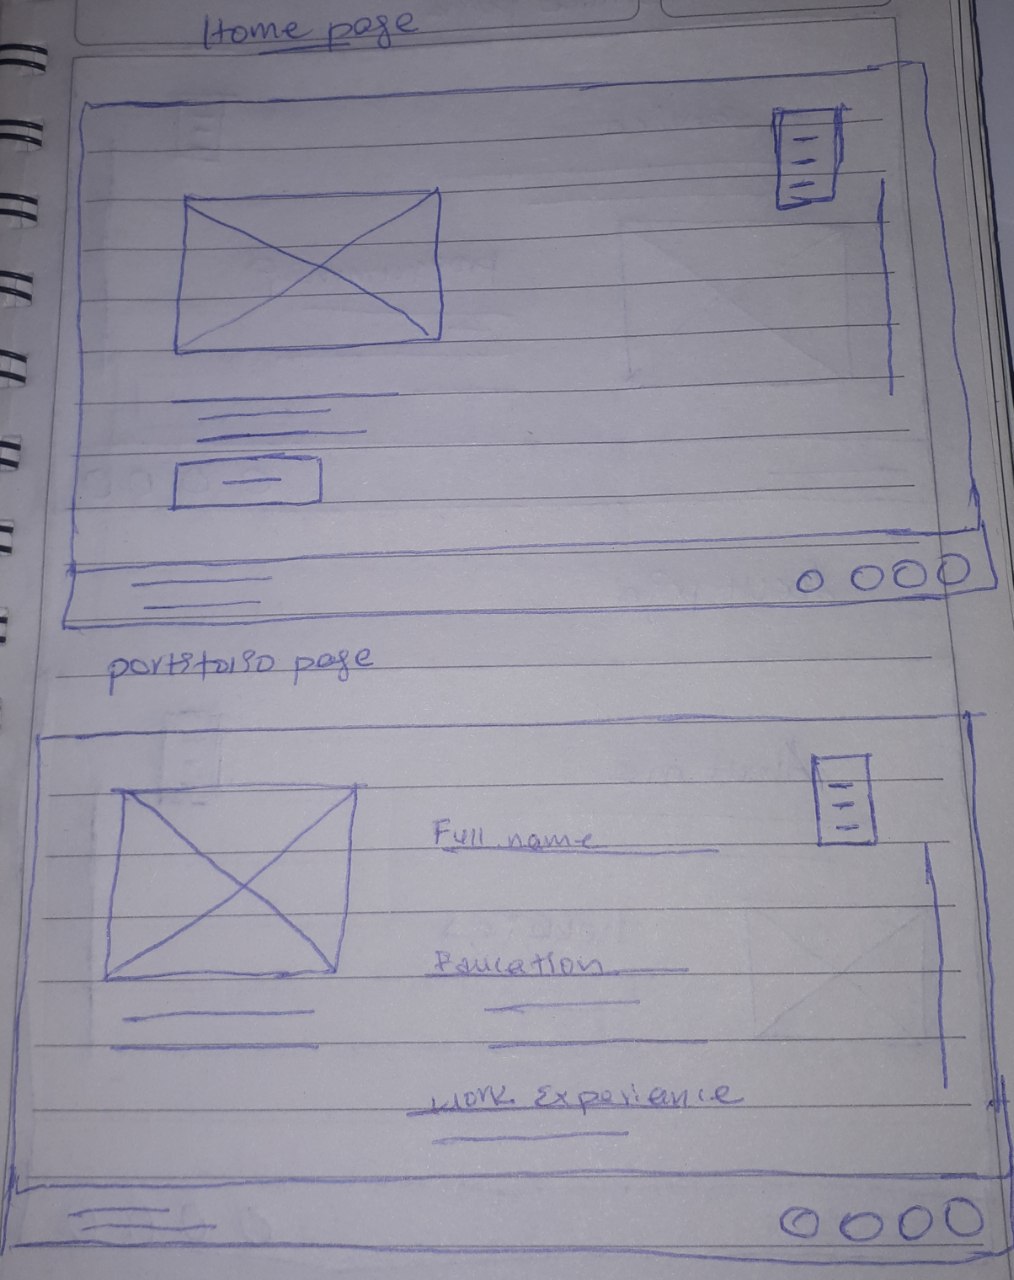 Home page
portifolio page
Full name
Education
Work Experience